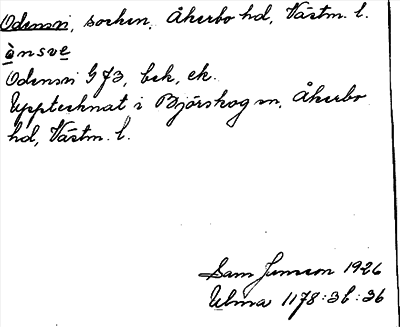 Odensvi, socken, Åkerbo hd, Västm. l.
ònsve
Odensvi G 73, bek, ek.
Upptecknat i Björskog sn, Åkerbo
hd, Västm. l.
Sam Jansson 1926
Ulma 1178:3b:36